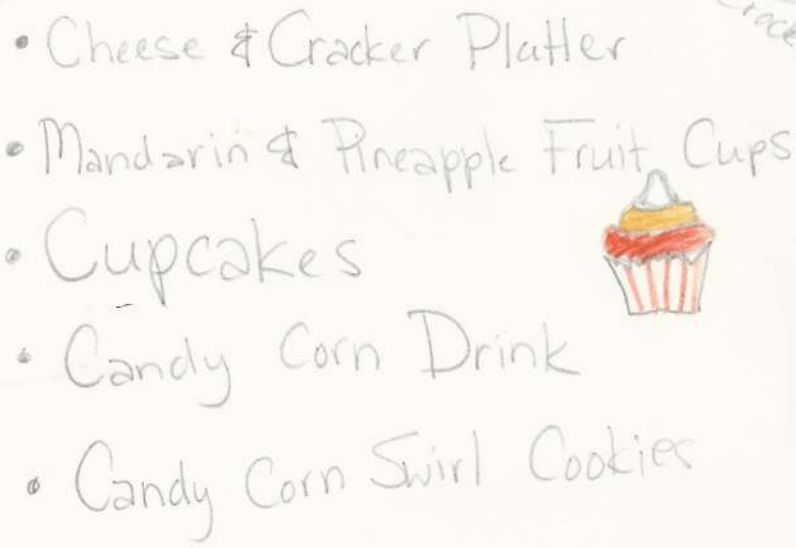 • Cheese & Cracker Platter
• Mandarin & Pineapple Fruit Cups
• Cupcakes
• Candy Corn Drink
• Candy Corn Swirl Cookies